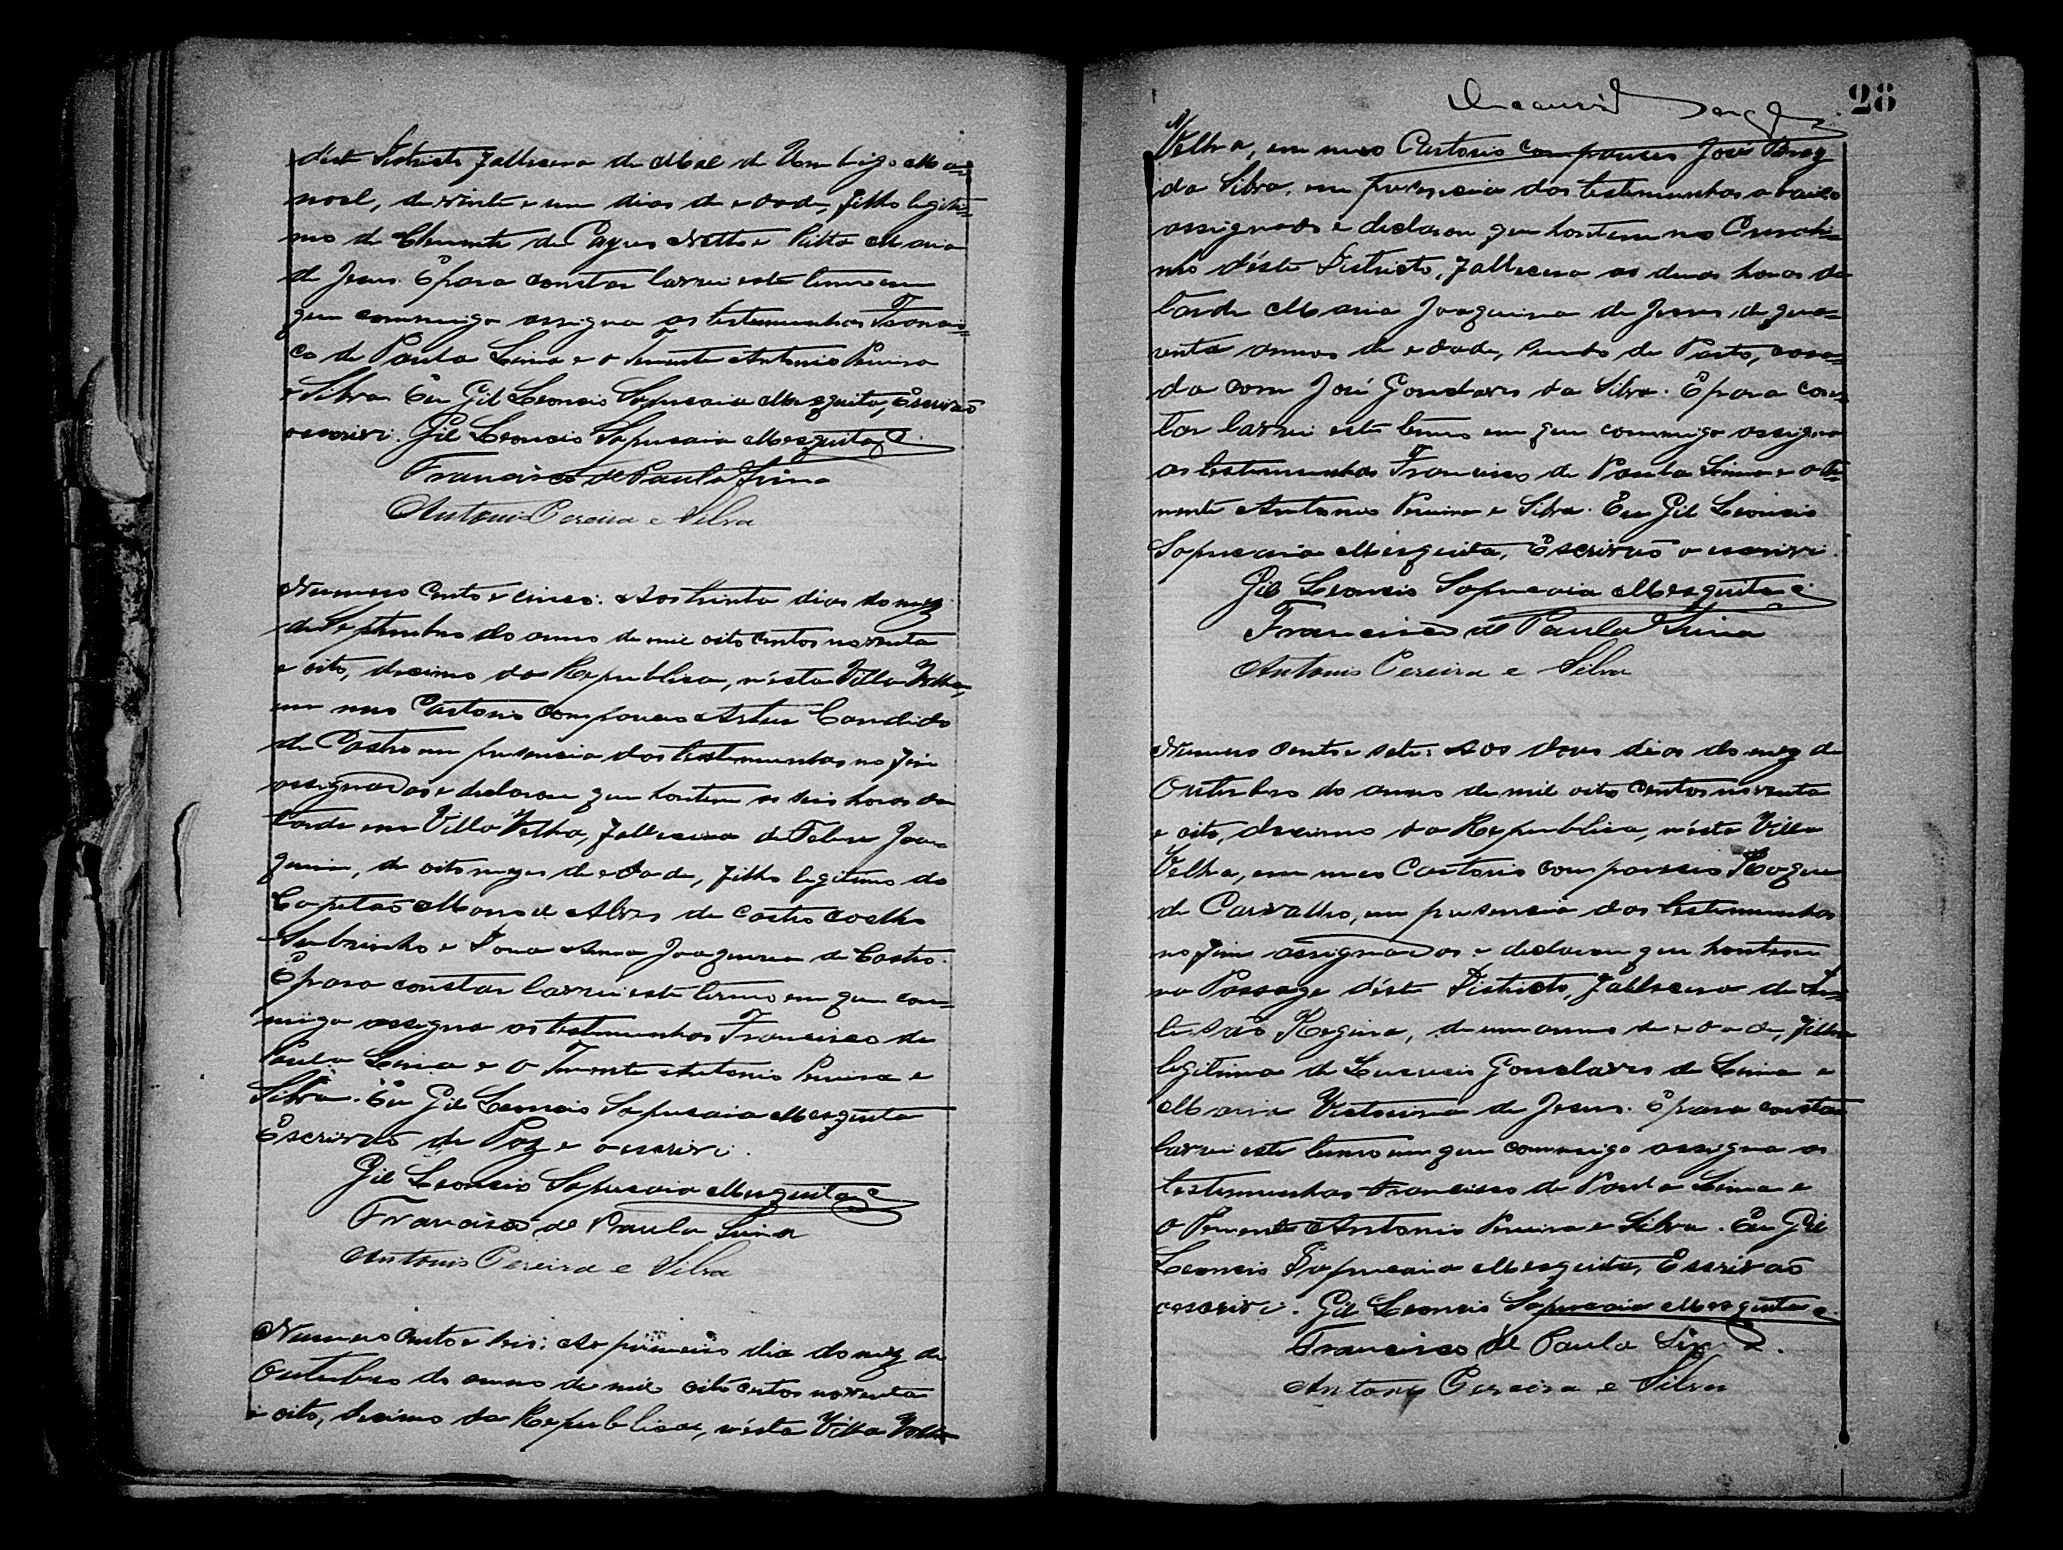 déste Districto fallecera de Mal de Umbigo Ma=
noel, de vinte e um dias de edade, filho legiti=
mo de Clemente de Cayres Netto e Ritta Maria
de Jesus. E para constar lavrei este termo em
que commigo assigna as testemunhas Francis=
co de Paula Lima e o Tenente Antonio Pereira
e Silva. Eu Gil Leoncio Sapucaia Mesquita, Escrivão
o escrivi. Gil Leoncio Sapucaia Mesquita
Francisco de Paula Lima
Antonio Pereira e Silva
Numero Cento e cinco: Aos trinta dias do mez
de Septembro do anno de mil oito centos noventa
e oito, decimo da Republica, nésta Villa Velha,
em meo Cartorio compareceo Artur Candido
de Castro em presencia das testemunhas no fim
assignadas e declarou que hontem as seis horas da
tarde em Villa Velha, fallecera de Febre Joa=
quim, de oito mezes de edade, filho legitimo do
Capitão Manoel Alves de Castro Coelho
Subrinho e Dona Anna Joaquina de Castro.
E para constar lavrei este termo em que com=
migo assigna as testemunhas Francisco de
Paula Lima e o Tenente Antonio Pereira e
Silva. Eu Gil Leoncio Sapucaia Mesquita
Escrivão de Paz e o escrivi.
Gil Leoncio Sapucaia Mesquita
Francisco de Paula Lima
Antonio Pereira e Silva
Numero Cento e seis: Ao primeiro dia do mez de
Outubro do anno de mil oito centos noventa
e oito, decimo da Republica, nésta Villa Velha
28
Velha, em meo Cartorio compareceo José
da Silva, em presencia das testemunhas abaixo
assignados e declarou que hontem no
déste Districto, fallecera as duas horas da
tarde Maria Joaquina de Jesus, de qua=
renta annos de edade, de Parto, casa=
da com José Gonçalves da Silva. E para cons=
tar lavrei este termo em que commigo assigna
as testemunhas Francisco de Paula Lima e o Te=
nente Antonio Pereira e Silva. Eu Gil Leoncio
Sapucaia Mesquita, Escrivão o escrivi.
Gil Leoncio Sapucaia Mesquita
Francisco de Paula Lima
Antonio Pereira e Silva
Numero Cento e sete: Aos dous dias do mez de
Outubro do anno de mil oito centos noventa
e oito, decimo da Republica, nésta Villa
Velha, em meo Cartorio compareceo Roque
de Carvalho, em presencia das testemunhas
no fim assignadas e declarou que hontem
na Passage déste Districto, fallecera de In=
Regina, de um anno de edade, filha
legitima de Gonçalves de Lima e
Maria Victorina de Jesus. E para constar
lavrei este termo em que commigo assigna as
testemunhas Francisco de Paula Lima e
o Tenente Antonio Pereira e Silva. Eu Gil
Leoncio Sapucaia Mesquita, Escrivão
o escrivi. Gil Leoncio Sapucaia Mesquita
Francisco de Paula Lima
Antonio Pereira e Silva